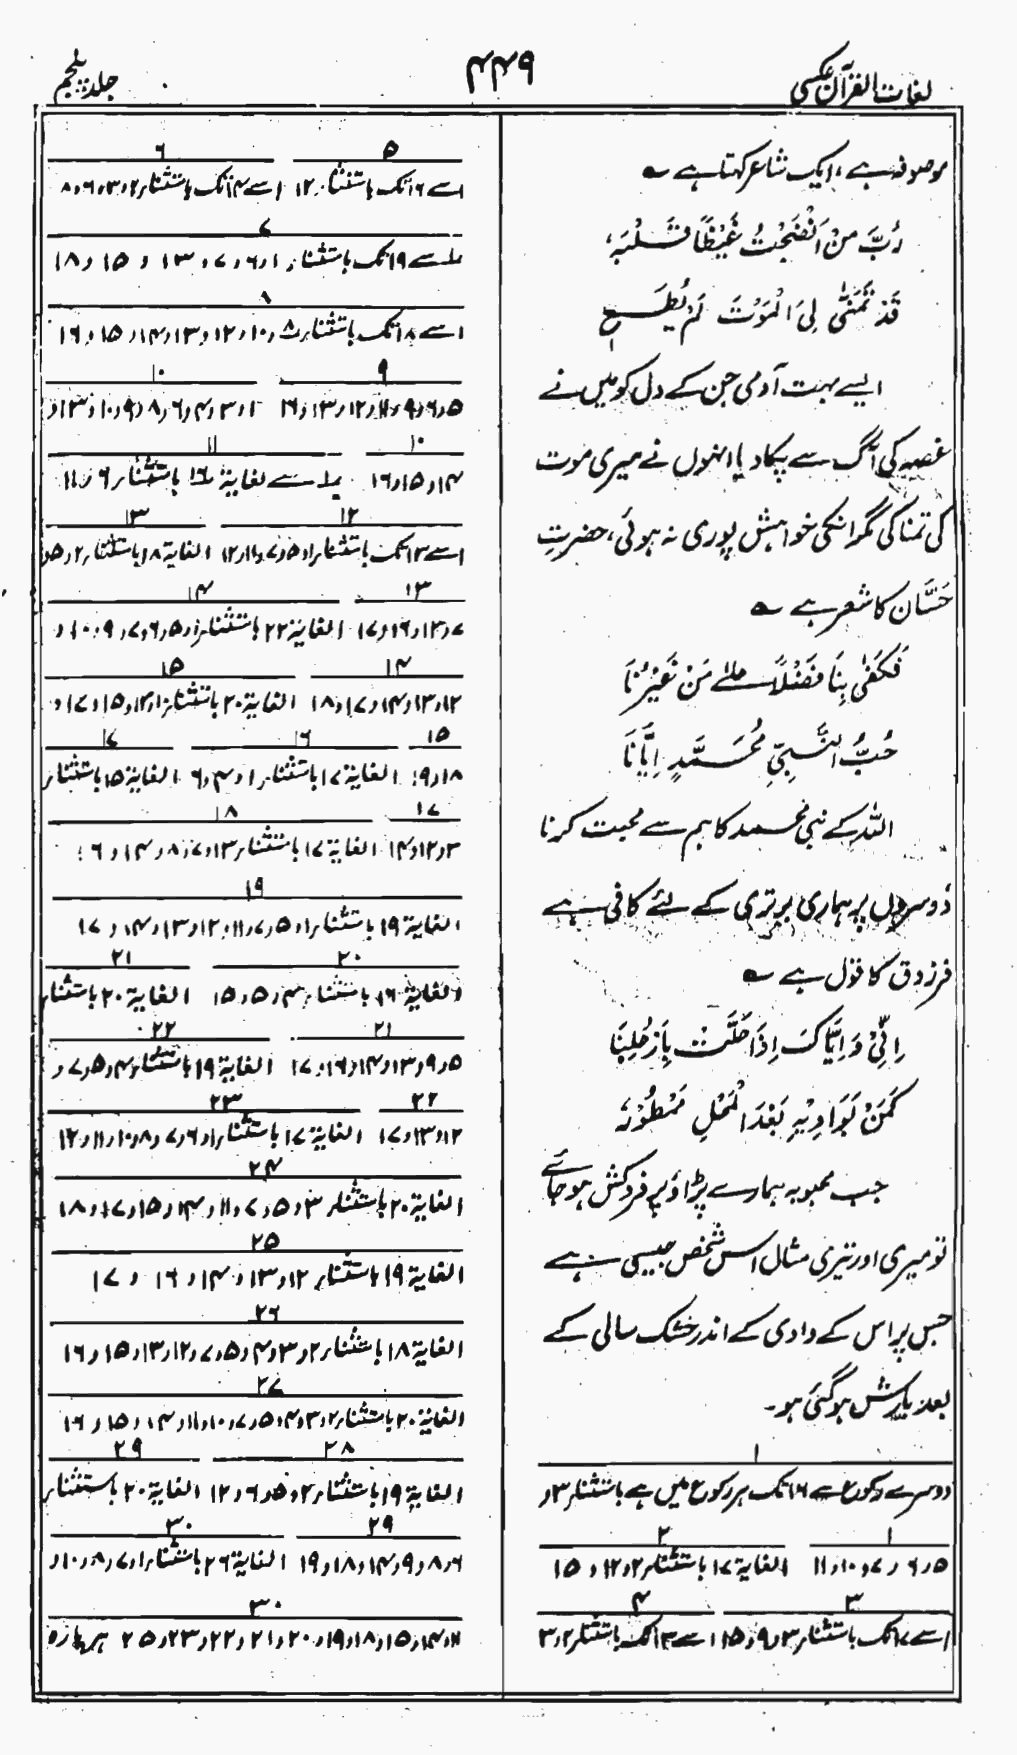 لغات القرآن عکسی
۴۴۹
جلد پنجم
موصوفہ ہے، ایک شاعر کہتا ہے ؎
رُبَّ مَنْ اَنْضَجْتُ غَیْظًا قَلْبَہٗ،
قَدْ تَمَنّٰی لِیَ الْمَوْتَ لَمْ یُطَعِ
ایسے بہت آدمی جن کے دل کو میں نے
غصہ کی آگ سے پکا دیا انہوں نے میری موت
کی تمنا کی مگر انکی خواہش پوری نہ ہوئی، حضرتِ
حَسَّان کا شعر ہے ؎
فَکَفٰی بِنَا فَضْلًا عَلٰے مَنْ غَیْرُنَا
حُبُّ النَّبِیِّ مُحَمَّدٍ اِیَّانَا
اللہ کے نبی محمد کا ہم سے محبت کرنا
دُوسروں پر ہماری برتری کے لئے کافی ہے
فرزدق کا قول ہے ؎
اِنِّیْ وَاِیَّاکَ اِذَا حَلَّتْ بِاَرْحُلِنَا
کَمَنْ بَوَادِیْہِ بَعْدَ الْمَحْلِ مَمْطُوْرٌ
جب محبوبہ ہمارے پڑاؤ پر فروکش ہو جائے
تو میری اور تیری مثال اس شخص جیسی ہے
جس پر اس کے وادی کے اندر خشک سالی کے
بعد بارش ہو گئی ہو۔
۱
دوسرے رکوع سے ۱۶ تک ہر رکوع میں ہے باستثنار ۳ر
۱ ۲
۵ر ۶ر ۷ر ۱۰ر ۱۱ الغایۃ ۱۷ باستثنار ۲ر ۱۲ر ۱۵
۳ ۴
۱ سے ۱۷ تک باستثنار ۳ر ۹ر ۱۵ ۱ سے ۱۳ تک باستثنار ۲ر ۳
۵ ۶
۱ سے ۱۶ تک باستثنار ۱۲ ۱ سے ۱۴ تک باستثنار ۲ر ۳ر ۶ر ۸
۷
۱ سے ۱۹ تک باستثنار ۱ر ۶ر ۷ر ۱۳ر ۱۵ر ۱۸
۸
۱ سے ۱۸ تک باستثنار ۸ر ۱۰ر ۱۲ر ۱۳ر ۱۴ر ۱۵ر ۱۶
۹ ۱۰
۵ر ۶ر ۹ر ۱۱ر ۱۲ر ۱۳ر ۱۶ ۱ر ۳ر ۴ر ۶ر ۸ر ۹ر ۱۰ر ۱۳ر
۱۰ ۱۱
۱۴ر ۱۵ر ۱۶ ۱ سے لغایۃ ۱۶ باستثنار ۶ر ۱۱
۱۲ ۱۳
۱ سے ۱۲ تک باستثنار ۱ر ۵ر ۷ر ۱۱ر ۱۲ الغایۃ ۱۸ باستثنار ۲ر ۵ر
۱۳ ۱۴
۷ر ۱۲ر ۱۶ر ۱۷ الغایۃ ۲۲ باستثنار ۱ر ۵ر ۶ر ۷ر ۹ر ۱۰ر
۱۴ ۱۵
۱۲ر ۱۳ر ۱۴ر ۱۷ر ۱۸ الغایۃ ۲۰ باستثنار ۱ر ۱۲ر ۱۵ر ۱۷ر
۱۵ ۱۶ ۱۷
۱۸ر ۱۹ الغایۃ ۱۷ باستثنار ۱ر ۴ر ۶ الغایۃ ۱۵ باستثنار
۱۷ ۱۸
۳ر ۱۲ر ۱۴ الغایۃ ۱۷ باستثنار ۳ر ۷ر ۸ر ۱۴ر ۱۶
۱۹
الغایۃ ۱۹ باستثنار ۱ر ۵ر ۷ر ۱۱ر ۱۲ر ۱۳ر ۱۴ر ۱۷
۲۰ ۲۱
الغایۃ ۱۶ باستثنار ۴ر ۵ر ۱۵ الغایۃ ۲۰ باستثنار
۲۱ ۲۲
۵ر ۹ر ۱۳ر ۱۴ر ۱۶ر ۱۷ الغایۃ ۱۹ باستثنار ۴ر ۵ر ۷ر
۲۲ ۲۳
۱۲ر ۱۳ر ۱۷ الغایۃ ۱۷ باستثنار ۱ر ۶ر ۷ر ۸ر ۱۰ر ۱۱ر ۱۲
۲۴
الغایۃ ۲۰ باستثنار ۳ر ۵ر ۷ر ۱۱ر ۱۴ر ۱۵ر ۱۷ر ۱۸
۲۵
الغایۃ ۱۹ باستثنار ۱۲ر ۱۳ر ۱۴ر ۱۶ر ۱۷
۲۶
الغایۃ ۱۸ باستثنار ۲ر ۳ر ۴ر ۵ر ۷ر ۱۲ر ۱۳ر ۱۵ر ۱۶
۲۷
الغایۃ ۲۰ باستثنار ۲ر ۳ر ۴ر ۵ر ۷ر ۱۰ر ۱۱ر ۱۴ر ۱۵ر ۱۶
۲۸ ۲۹
الغایۃ ۱۹ باستثنار ۲ر ۵ر ۶ر ۱۲ الغایۃ ۲۰ باستثنار
۲۹ ۳۰
۶ر ۸ر ۹ر ۱۴ر ۱۸ر ۱۹ الغایۃ ۲۶ باستثنار ۱ر ۷ر ۸ر ۱۰ر
۳۰
۱۱ر ۱۴ر ۱۵ر ۱۸ر ۱۹ر ۲۰ر ۲۱ر ۲۲ر ۲۳ر ۲۵ ہر پارہ